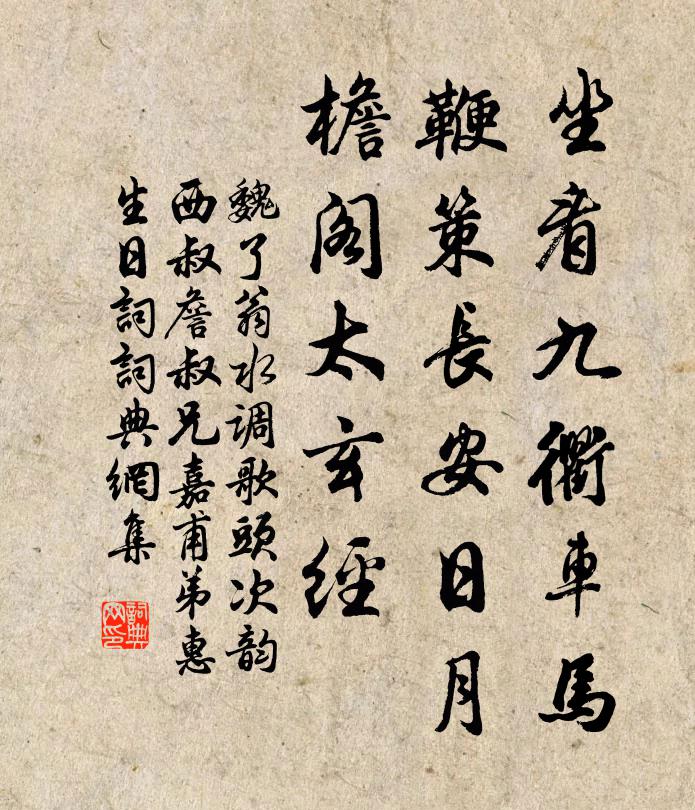 坐看九衢車馬
鞭策長安日月
檐阁太玄經
魏了翁水调歌頭次韵
西叔詹叔兄嘉甫弟惠
生日詞詞典網集
詞典网印